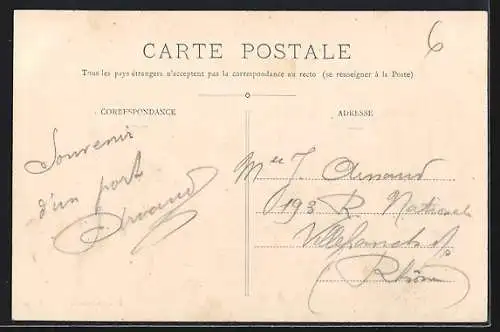 6
CARTE POSTALE
Tous les pays étrangers n'acceptent pas la correspondance au recto (se renseigner à la Poste)
CORRESPONDANCE
ADRESSE
Souvenir
d'un port
Mlle J. Arnaud
193 R Nationale
Villefranche s/
Rhône